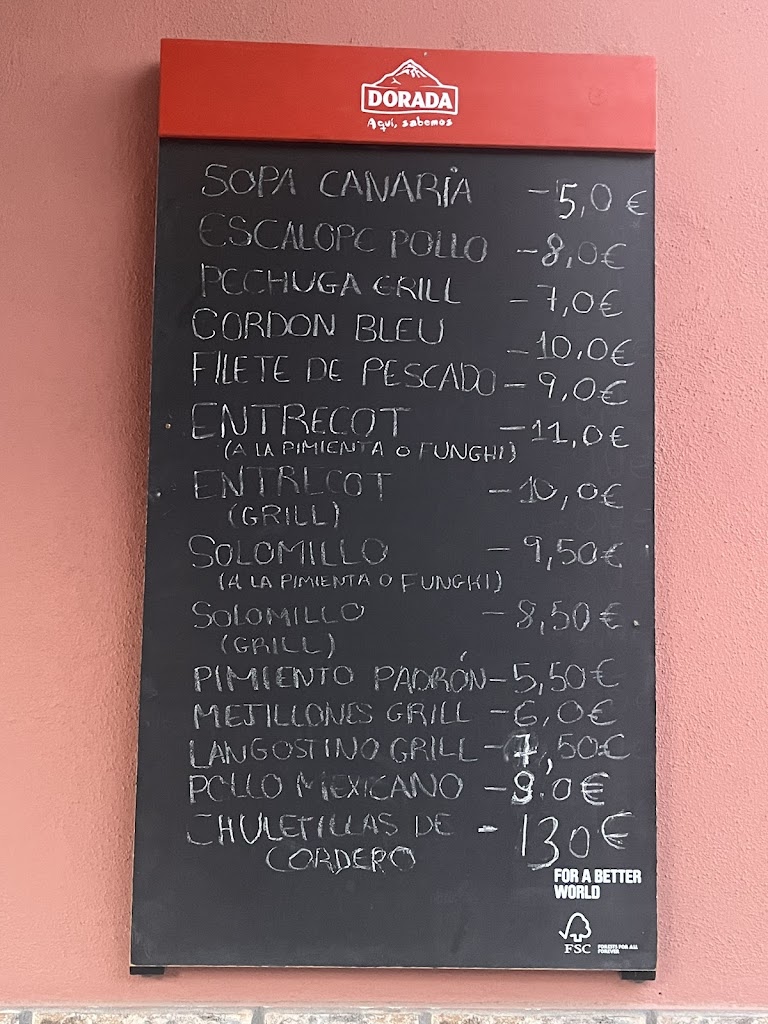 DORADA
Aquí, sabemos
SOPA CANARiA - 5,0 €
ESCALOPE POLLO - 8,0€
PECHUGA GRILL - 7,0€
CORDON BLEU - 10,0€
FILETE DE PESCADO - 9,0€
ENTRECOT - 11,0€
(A LA PIMIENTA O FUNGHI)
ENTRECOT - 10,0€
(GRILL)
SOLOMILLO - 9,50€
(A LA PIMIENTA O FUNGHI)
SOLOMILLO - 8,50€
(GRILL)
PIMIENTO PADRÓN - 5,50€
MEJILLONES GRILL - 6,0€
LANGOSTINO GRILL - 7,50€
POLLO MEXICANO - 9.0€
CHULETILLAS DE - 130€
CORDERO
FOR A BETTER
WORLD
FSC
FORESTS FOR ALL
FOREVER